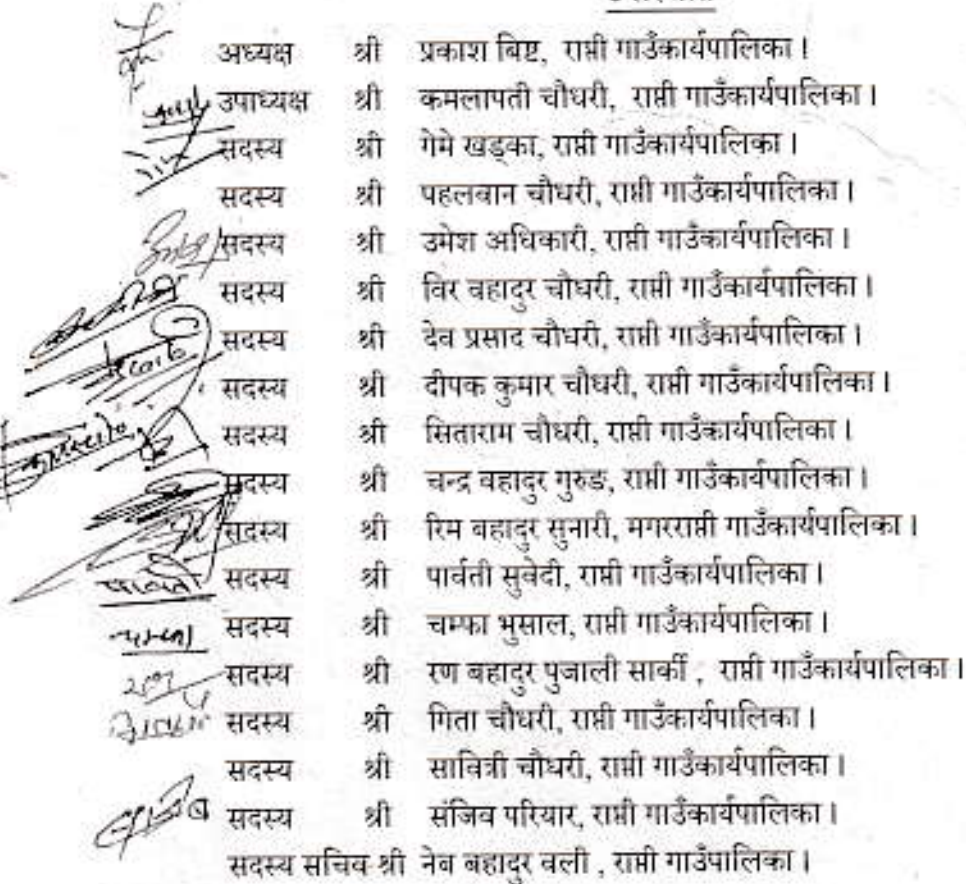 अध्यक्ष श्री प्रकाश बिष्ट, राप्ती गाउँकार्यपालिका ।
उपाध्यक्ष श्री कमलापती चौधरी, राप्ती गाउँकार्यपालिका ।
सदस्य श्री गेमे खड्का, राप्ती गाउँकार्यपालिका ।
सदस्य श्री पहलवान चौधरी, राप्ती गाउँकार्यपालिका ।
सदस्य श्री उमेश अधिकारी, राप्ती गाउँकार्यपालिका ।
सदस्य श्री विर वहादुर चौधरी, राप्ती गाउँकार्यपालिका ।
सदस्य श्री देव प्रसाद चौधरी, राप्ती गाउँकार्यपालिका ।
सदस्य श्री दीपक कुमार चौधरी, राप्ती गाउँकार्यपालिका ।
सदस्य श्री सिताराम चौधरी, राप्ती गाउँकार्यपालिका ।
सदस्य श्री चन्द्र वहादुर गुरुङ, राप्ती गाउँकार्यपालिका ।
सदस्य श्री रिम बहादुर सुनारी, मगरराप्ती गाउँकार्यपालिका ।
पार्वती सदस्य श्री पार्वती सुवेदी, राप्ती गाउँकार्यपालिका ।
चम्फा सदस्य श्री चम्फा भुसाल, राप्ती गाउँकार्यपालिका ।
सदस्य श्री रण बहादुर पुजाली सार्की , राप्ती गाउँकार्यपालिका ।
सदस्य श्री गिता चौधरी, राप्ती गाउँकार्यपालिका ।
सदस्य श्री सावित्री चौधरी, राप्ती गाउँकार्यपालिका ।
सदस्य श्री संजिव परियार, राप्ती गाउँकार्यपालिका ।
सदस्य सचिव श्री नेब बहादुर वली , राप्ती गाउँपालिका ।